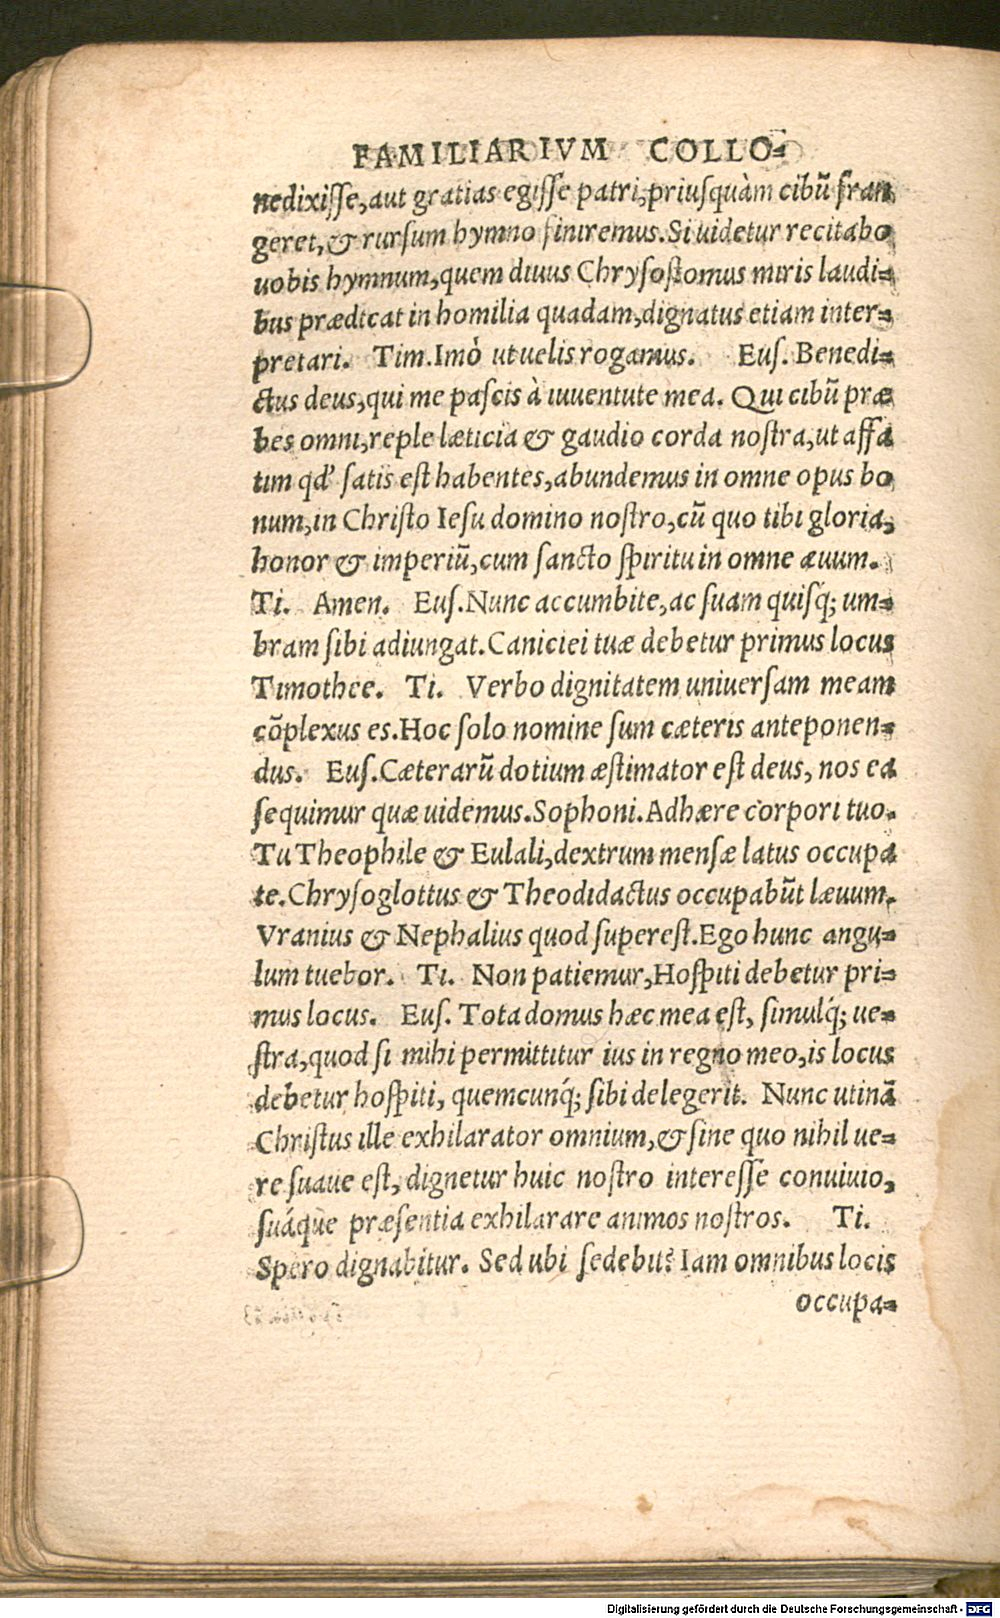 FAMILIARIVM COLLO-
nedixisse, aut gratias egisse patri, priusquàm cibũ fran
geret, & rursum hymno finiremus. Si uidetur recitabo
uobis hymnum, quem diuus Chrysostomus miris laudi-
bus prædicat in homilia quadam, dignatus etiam inter-
pretari. Tim. Imò ut uelis rogamus. Eus. Benedi-
ctus deus, qui me pascis à iuuentute mea. Qui cibũ præ
bes omni, reple læticia & gaudio corda nostra, ut affa
tim qd' satis est habentes, abundemus in omne opus bo
num, in Christo Iesu domino nostro, cũ quo tibi gloria,
honor & imperiũ, cum sancto spiritu in omne æuum.
Ti. Amen. Eus. Nunc accumbite, ac suam quisq́; um-
bram sibi adiungat. Caniciei tuæ debetur primus locus
Timothee. Ti. Verbo dignitatem uniuersam meam
cõplexus es. Hoc solo nomine sum cæteris anteponen-
dus. Eus. Cæterarũ dotium æstimator est deus, nos ea
sequimur quæ uidemus. Sophoni. Adhære corpori tuo.
Tu Theophile & Eulali, dextrum mensæ latus occupa
te. Chrysoglottus & Theodidactus occupabũt læuum.
Vranius & Nephalius quod superest. Ego hunc angu-
lum tuebor. Ti. Non patiemur, Hospiti debetur pri-
mus locus. Eus. Tota domus hæc mea est, simulq́; ue-
stra, quod si mihi permittitur ius in regno meo, is locus
debetur hospiti, quemcunq́; sibi delegerit. Nunc utinã
Christus ille exhilarator omnium, & sine quo nihil ue-
re suaue est, dignetur huic nostro interesse conuiuio,
suáque præsentia exhilarare animos nostros. Ti.
Spero dignabitur. Sed ubi sedebit? Iam omnibus locis
occupa-
Digitalisierung gefördert durch die Deutsche Forschungsgemeinschaft - DFG